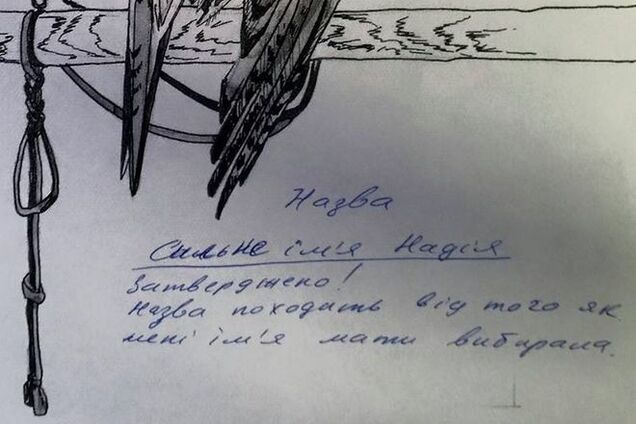 Назва
Сильне ім'я Надія
Затверджено!
Назва походить від того як
мені ім'я мати вибирала.